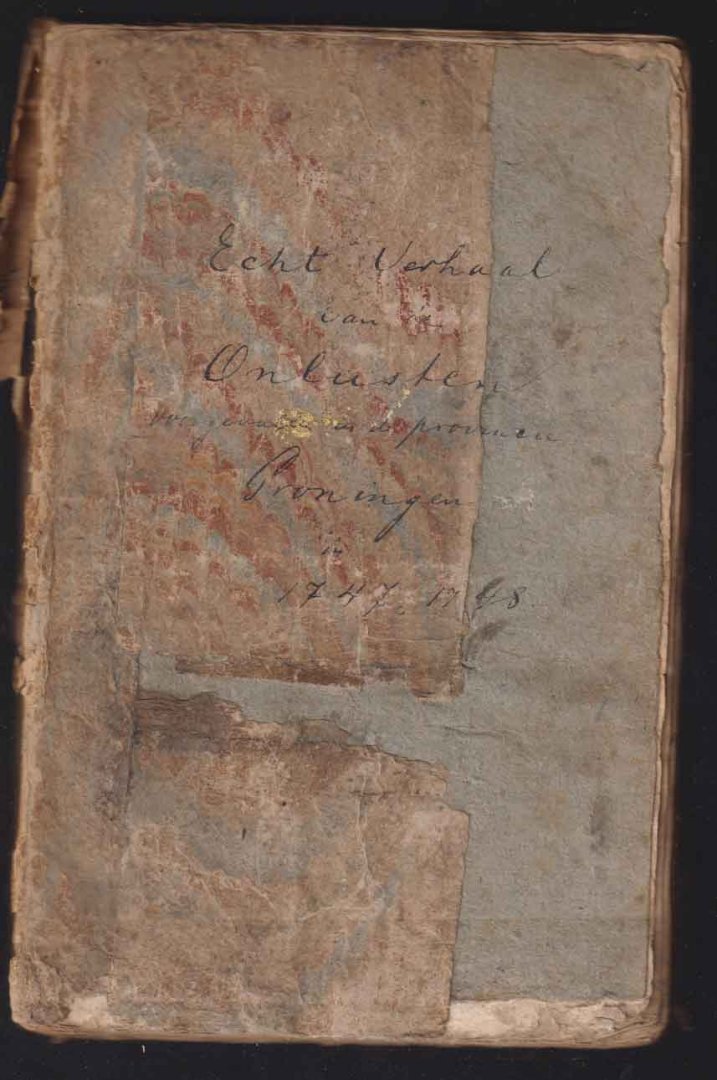 Echt Verhaal
van de
Onlusten
voorgevallen in de provincie
Groningen
in
1747, 1748